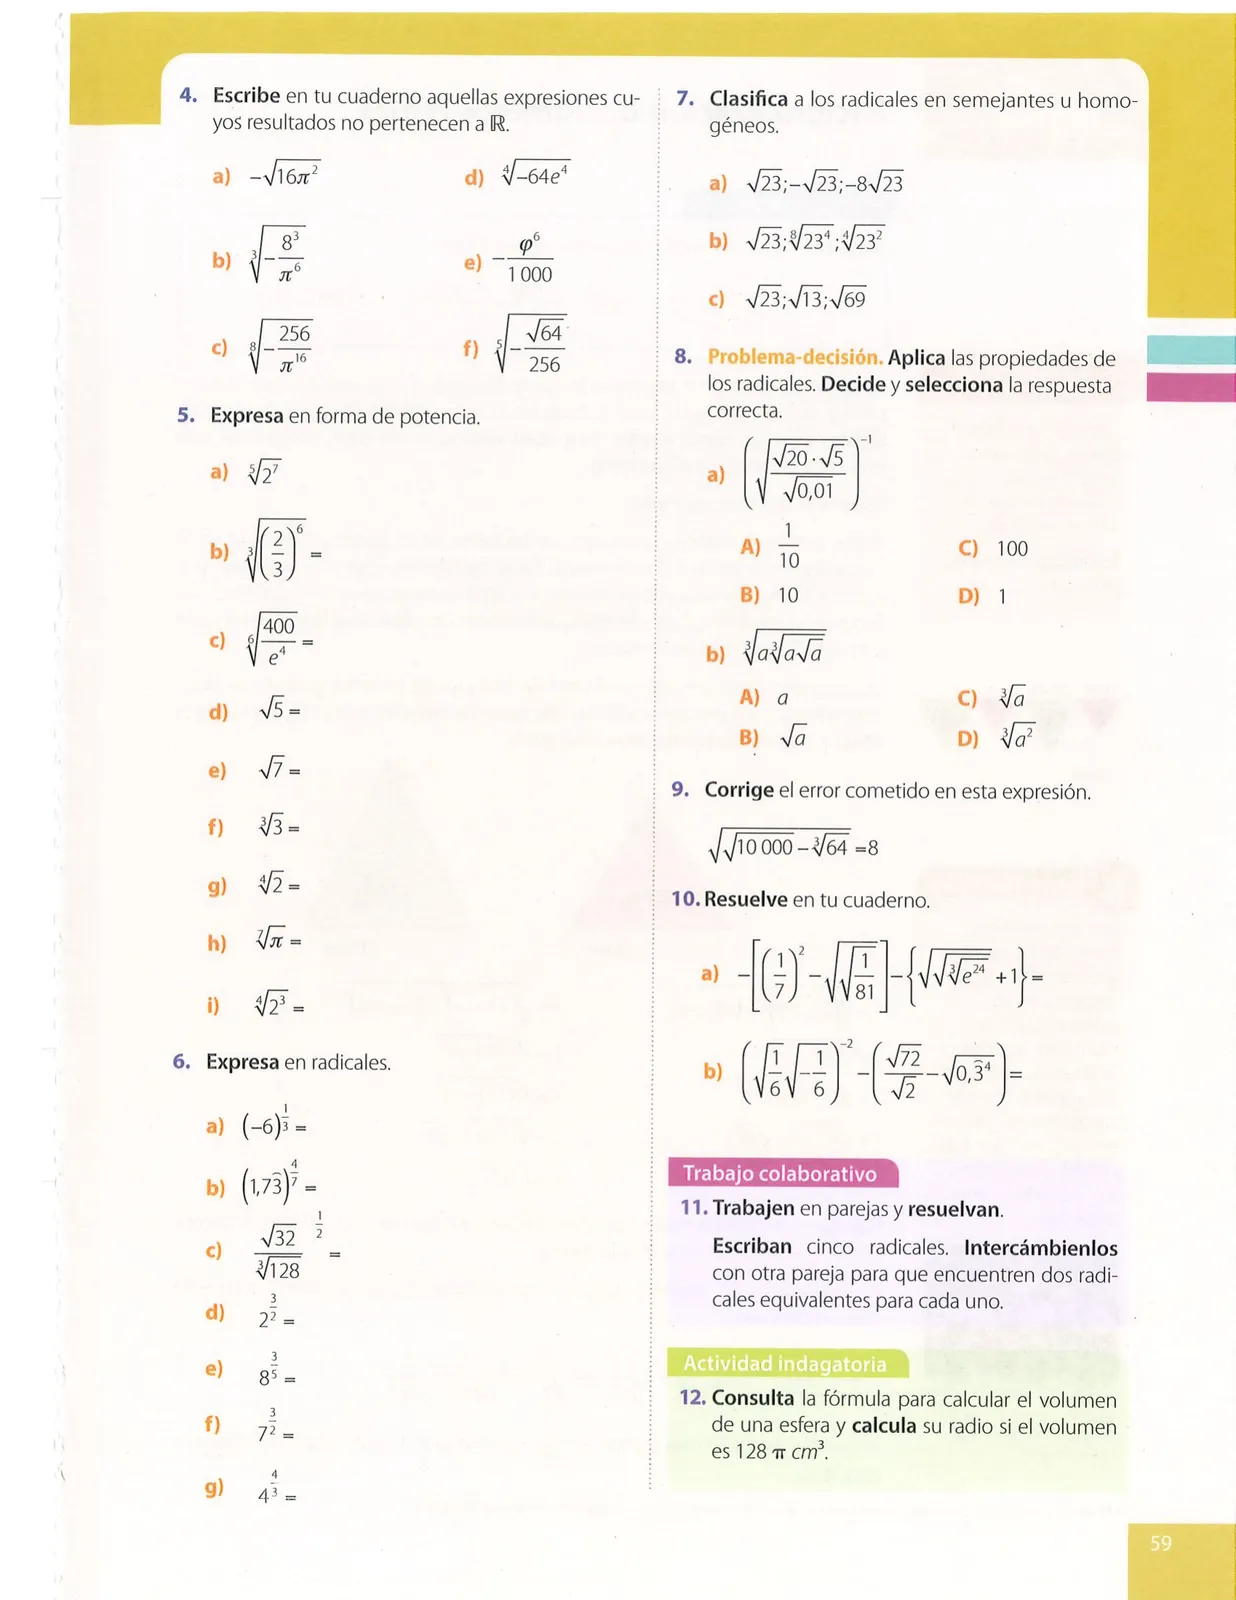 4. Escribe en tu cuaderno aquellas expresiones cu-
yos resultados no pertenecen a ℝ.
a) −√(16π²)
d) ⁴√(−64e⁴)
b) ³√(−8³/π⁶)
e) −φ⁶/1 000
c) ⁸√(−256/π¹⁶)
f) ⁵√(−√64/256)
5. Expresa en forma de potencia.
a) ⁵√(2⁷)
b) ³√((2/3)⁶) =
c) ⁶√(400/e⁴) =
d) √5 =
e) √7 =
f) ³√3 =
g) ⁴√2 =
h) ⁷√π =
i) ⁴√(2³) =
6. Expresa en radicales.
a) (−6)^(1/3) =
b) (1,73̂)^(4/7) =
c) √32/³√128 ^(1/2) =
d) 2^(3/2) =
e) 8^(3/5) =
f) 7^(3/2) =
g) 4^(4/3) =
7. Clasifica a los radicales en semejantes u homo-
géneos.
a) √23;−√23;−8√23
b) √23;⁸√(23⁴);⁴√(23²)
c) √23;√13;√69
8. Problema-decisión. Aplica las propiedades de
los radicales. Decide y selecciona la respuesta
correcta.
a) (√((√20·√5)/√0,01))⁻¹
A) 1/10
C) 100
B) 10
D) 1
b) ³√(a³√(a√a))
A) a
C) ³√a
B) √a
D) ³√(a²)
9. Corrige el error cometido en esta expresión.
√(√(10 000) − ³√64) =8
10. Resuelve en tu cuaderno.
a) −[(1/7)² − √(√(1/81))] − {√(√(³√(e²⁴))) +1} =
b) (√(1/6) √(−1/6))⁻² − (√72/√2 − √(0,3̂⁴)) =
Trabajo colaborativo
11. Trabajen en parejas y resuelvan.
Escriban cinco radicales. Intercámbienlos
con otra pareja para que encuentren dos radi-
cales equivalentes para cada uno.
Actividad indagatoria
12. Consulta la fórmula para calcular el volumen
de una esfera y calcula su radio si el volumen
es 128 π cm³.
59